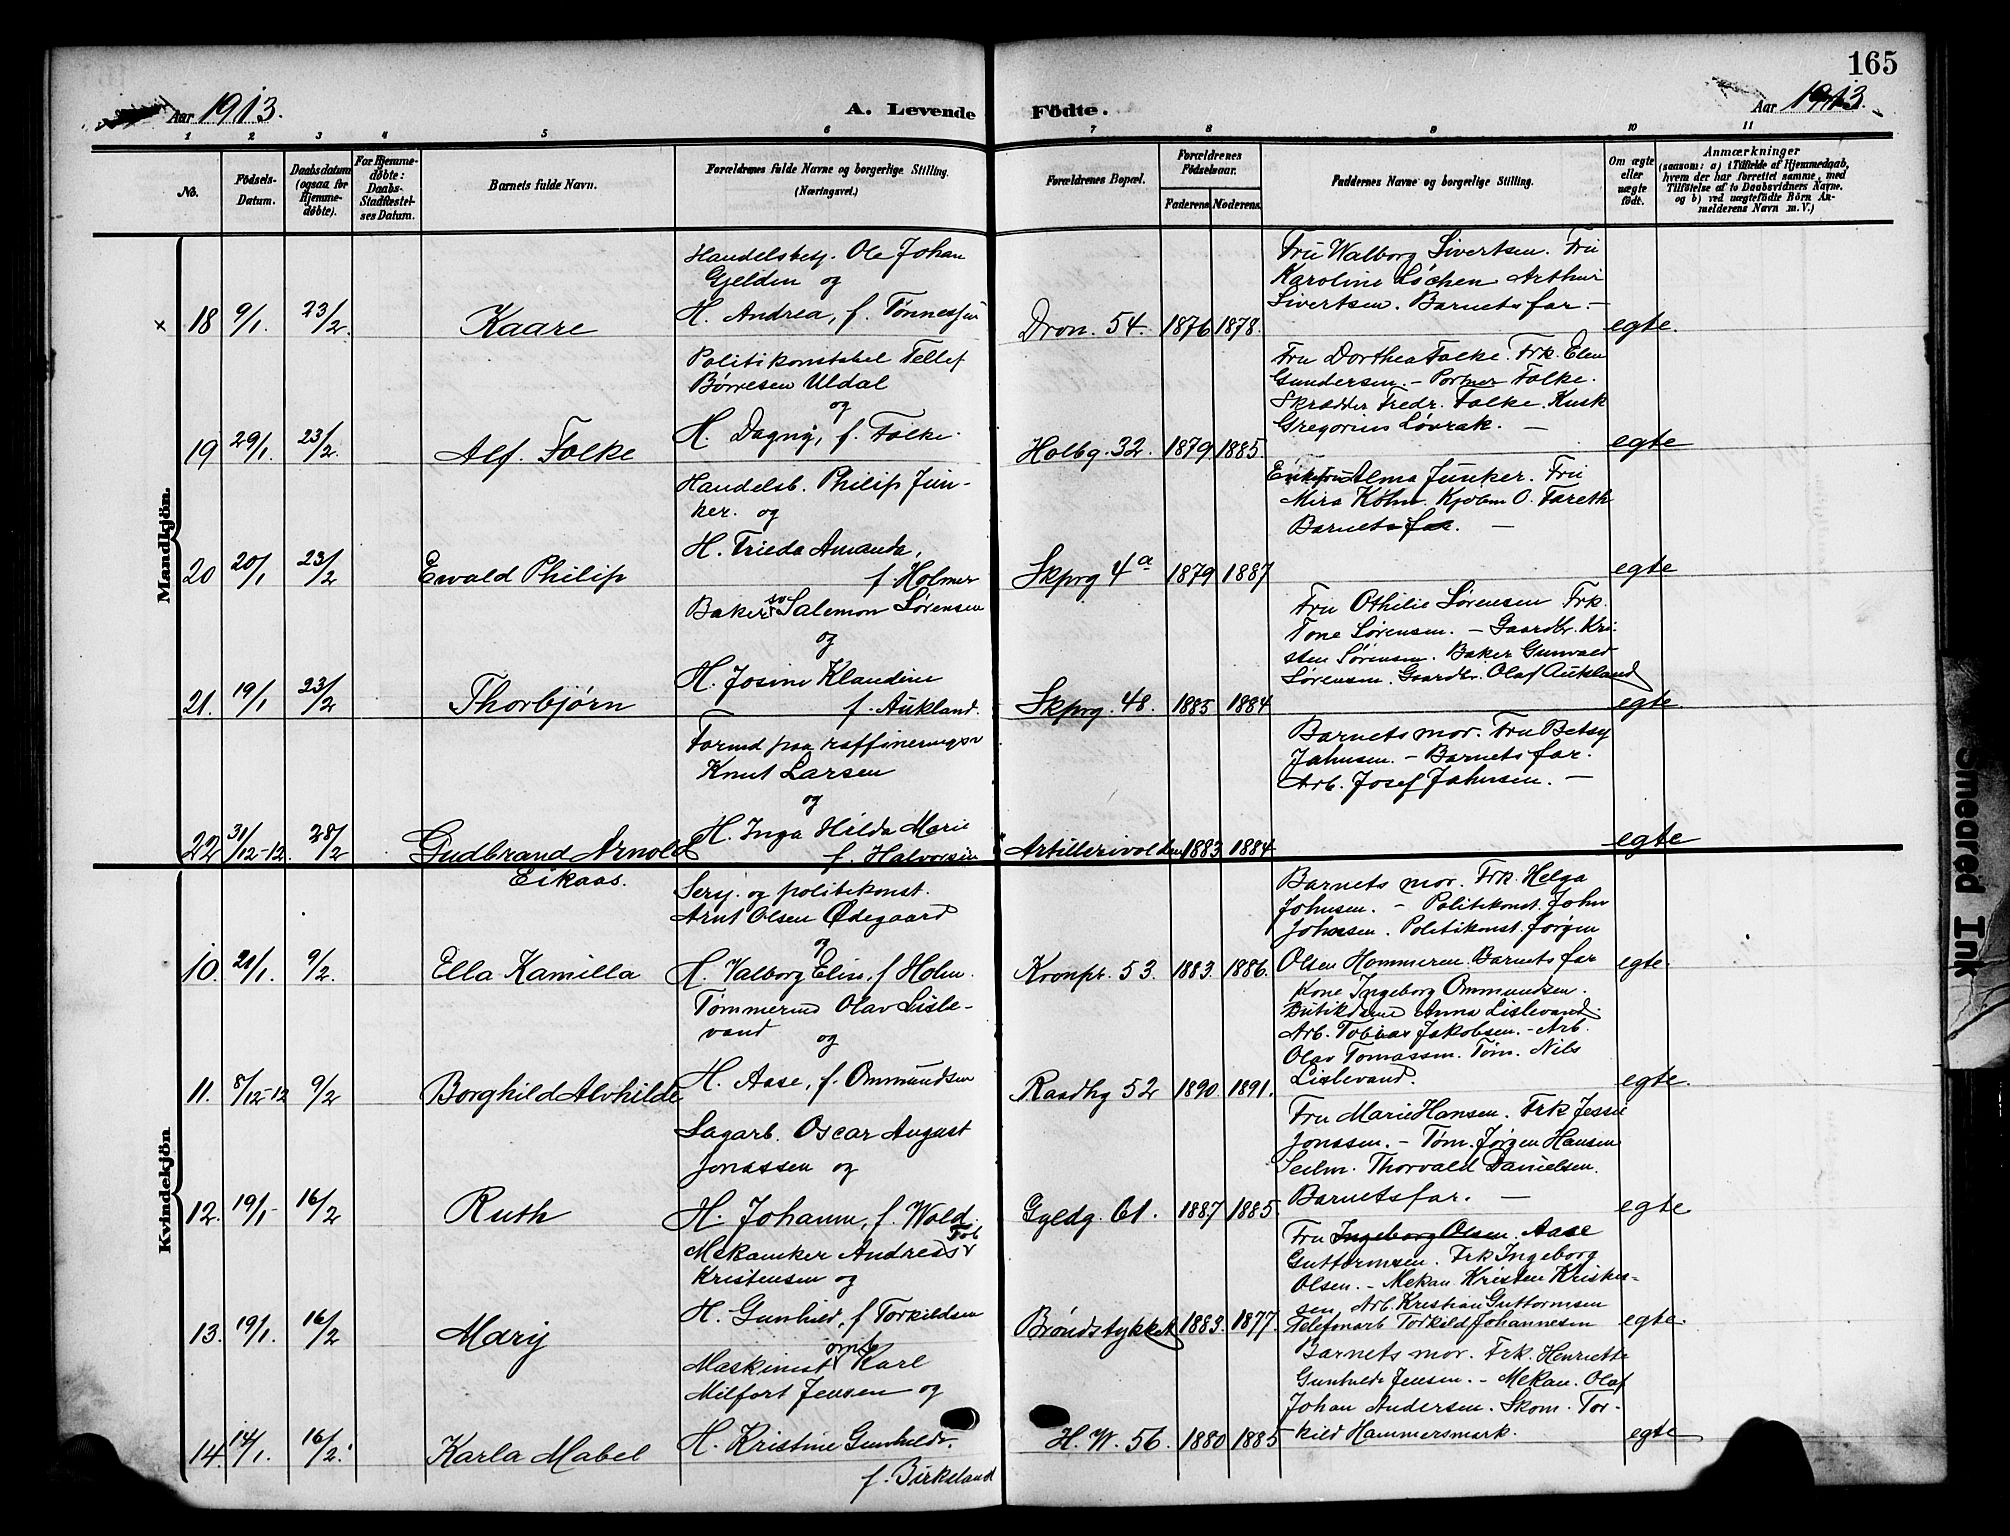 165
Aar 1913. A. Levende Födte. Aar 1913.
1 2 3 4 5 6 7 8 9 10 11
No.
Födsels-
Datum.
Daabsdatum
(ogsaa for
Hjemme-
døbte).
For Hjemme-
døbte:
Daabs-
Stadfæstel-
ses Datum.
Barnets fulde Navn.
Forældrenes fulde Navne og borgerlige Stilling.
(Næringsvei.)
Forældrenes Bopæl.
Forældrenes
Födselsaar.
Faderens Moderens.
Faddernes Navne og borgerlige Stilling.
Om ægte
eller
uægte
født.
Anmærkninger
(saasom: a) i Tilfælde af Hjemmedaab,
hvem der har forrettet samme, med
Tilföielse af to Daabsvidners Navne,
og b) ved uægtefödte Börn An-
melderens Navn m. V.)
Mandkjön.
Handelsbesj. Ole Johan
Gjelden og
x 18 9/1. 23/2. Kaare H. Andrea, f. Tønnessen
Dron. 54. 1876 1878.
Fru Walborg Sivertsen. Fru
Karoline Løchen Arthur
Sivertsen. Barnets far. —
egte.
Politikonstabel Tellef
Børresen Uldal
og
19 29/1. 23/2. Alf. Falke H. Dagny, f. Falke.
Holbg. 32. 1879 1885.
Fru Dorthea Falke. Frk. Elen
Gundersen. — Falke.
Skrædder Fredr. Falke. Kusk
Gregorius Løvrak. —
egte
Handelsb. Philip Jun-
ker. og
20 20/1 23/2 Ewald Philip H. Frieda Amanda,
f. Holmer
Skprg 4a 1879 1887
Enkefru Alma Junker. Fru
Mira Køhn. Kjøbm O. Tareth
Barnets far. —
egte
Bakersv Salemon Sørensen
og
21. 19/1 23/2 Thorbjørn H. Josine Klaudine
f. Aukland.
Skprg. 48. 1885 1884
Fru Othilie Sørensen Frk.
Tone Sørensen. — Gaardbr. Kri-
sten Sørensen. Baker Gunvald
Sørensen. Gaardbr. Olaf Aukland
egte.
Formd paa raffineringsv
Knut Larsen
og
22 31/12-12. 28/2 Gudbrand Arnold H. Inga Hilda Marie
f. Halvorsen
Artillerivolden 1883 1884
Barnets mor. Fru Betsy
Jahnsen. — Barnets far.
Arb. Josef Jahnsen. —
egte
Eikaas.
Kvindekjön
Sersj. og politikonst.
Arnt Olsen Ødegaard
og
10. 21/1. 9/2. Ella Kamilla H. Valborg Elin, f. Holm.
Kronpr. 53. 1883. 1886.
Barnets mor. Frk. Helga
Johnsen. — Politikonst. John
Johnsen. Politikonst. Jørgen
Olsen Hommeren. Barnets far
egte.
Tømmermd Olav Lisle-
vand
og
11. 8/12-12 9/2 Borghild Alvhilde H. Aase, f. Ommundsen
Raadhg 52 1890. 1891.
Kone Ingeborg Ommundsen.
Butikdame Anna Lislevand.
Arb. Tobias Jakobsen. — Arb.
Olav Tomassen. Tøm. Nils
Lislevand.
egte.
Sagarb. Oscar August
Jonassen og
12. 19/1- 16/2 Ruth H. Johanne, f. Wold.
Gyldg. 61. 1887 1885
Fru Marie Hansen. Frk Jessie
Jonssen. — Tøm. Jørgen Hansen
Seilm. Thorvald Danielsen.
Barnets far. —
egte
Mekaniker Andreas Tob
Kristensen og
13. 19/1. 16/2 Mary H. Gunhild, f Torkildsen
Brøndstykket 1883. 1877.
Fru Ingeborg Olsen. Aase
Guttormsen. Frk Ingeborg
Olsen. — Mekan Kristen Kristen-
sen. Arb. Kristian Guttormsen
Telefonarb Torkild Johannesen
egte.
Maskinist Karl
Milfort Jensen og
14. 14/1. 16/2. Karla Mabel H. Kristine Gunhilde.
f. Birkeland
H. W. 56. 1880 1885
Barnets mor. Frk. Henriette
Gunhilde Jensen. — Mekan. Olaf
Johan Andersen. Skom. Tor-
kild Hammersmark.
egte
Smeared Ink